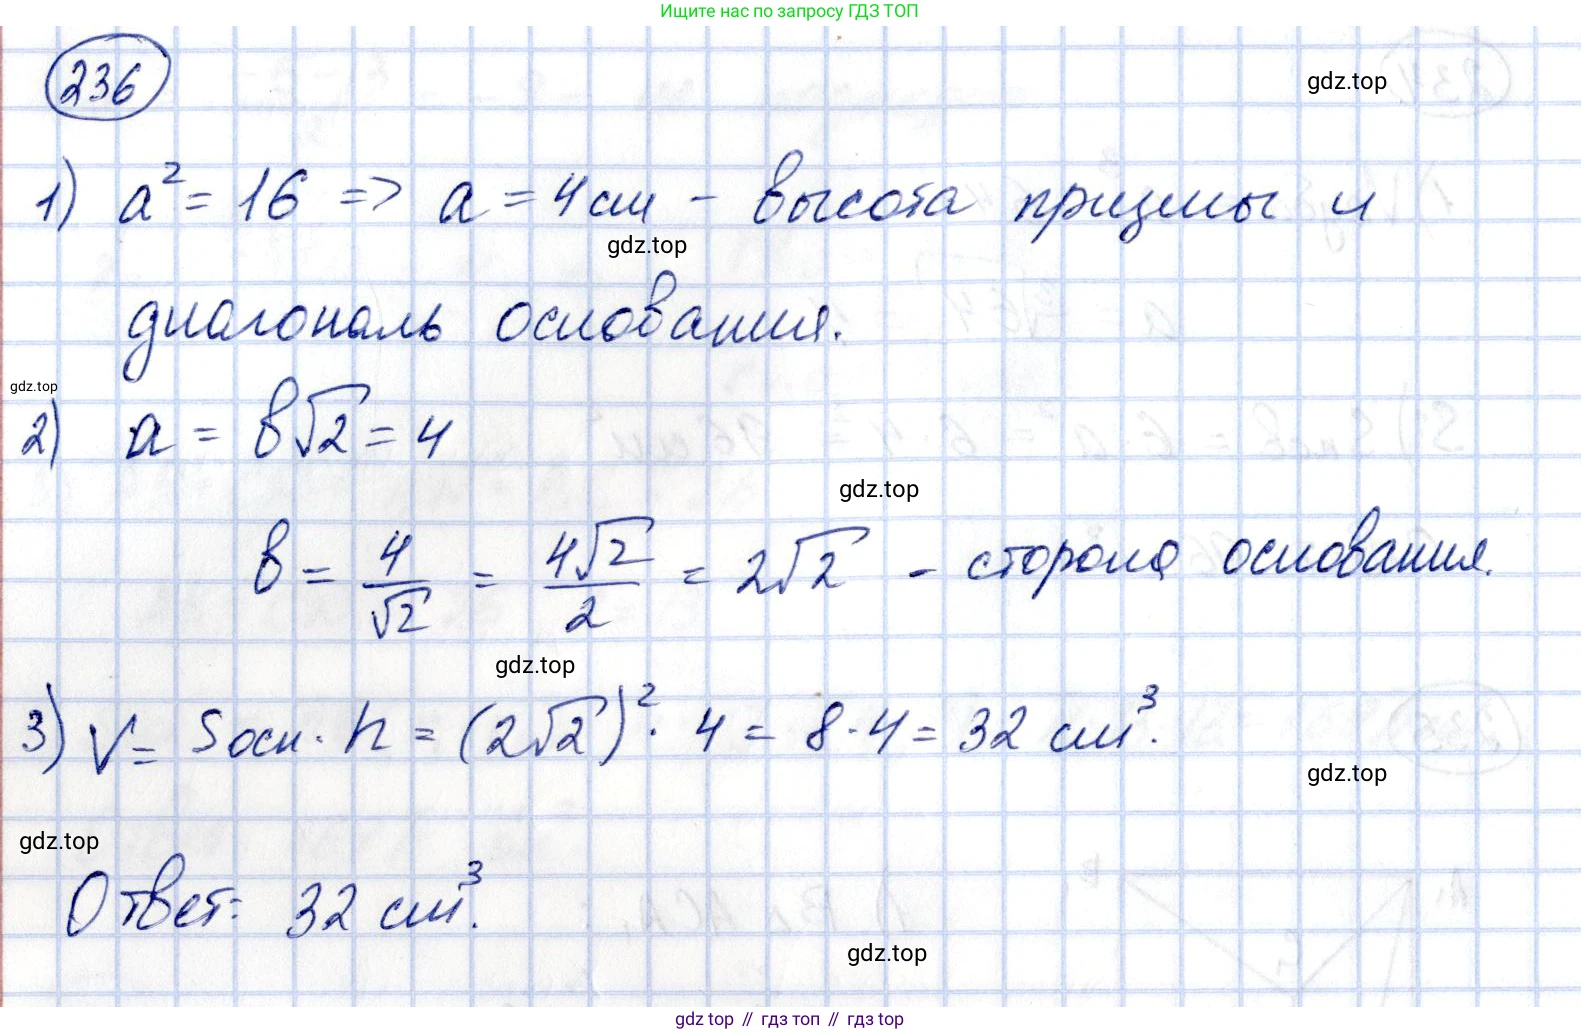 Ищите нас по запросу ГДЗ ТОП
236
gdz.top
1) a² = 16 => a = 4 см - высота призмы и
gdz.top
диагональ основания.
gdz.top
2) a = в√2 = 4
gdz.top
в = 4/√2 = 4√2/2 = 2√2 - сторона основания.
gdz.top
3) V = Sосн. h = (2√2)² · 4 = 8 · 4 = 32 см³.
gdz.top
gdz.top
Ответ: 32 см³.
gdz.top
gdz.top // гдз топ // гдз top